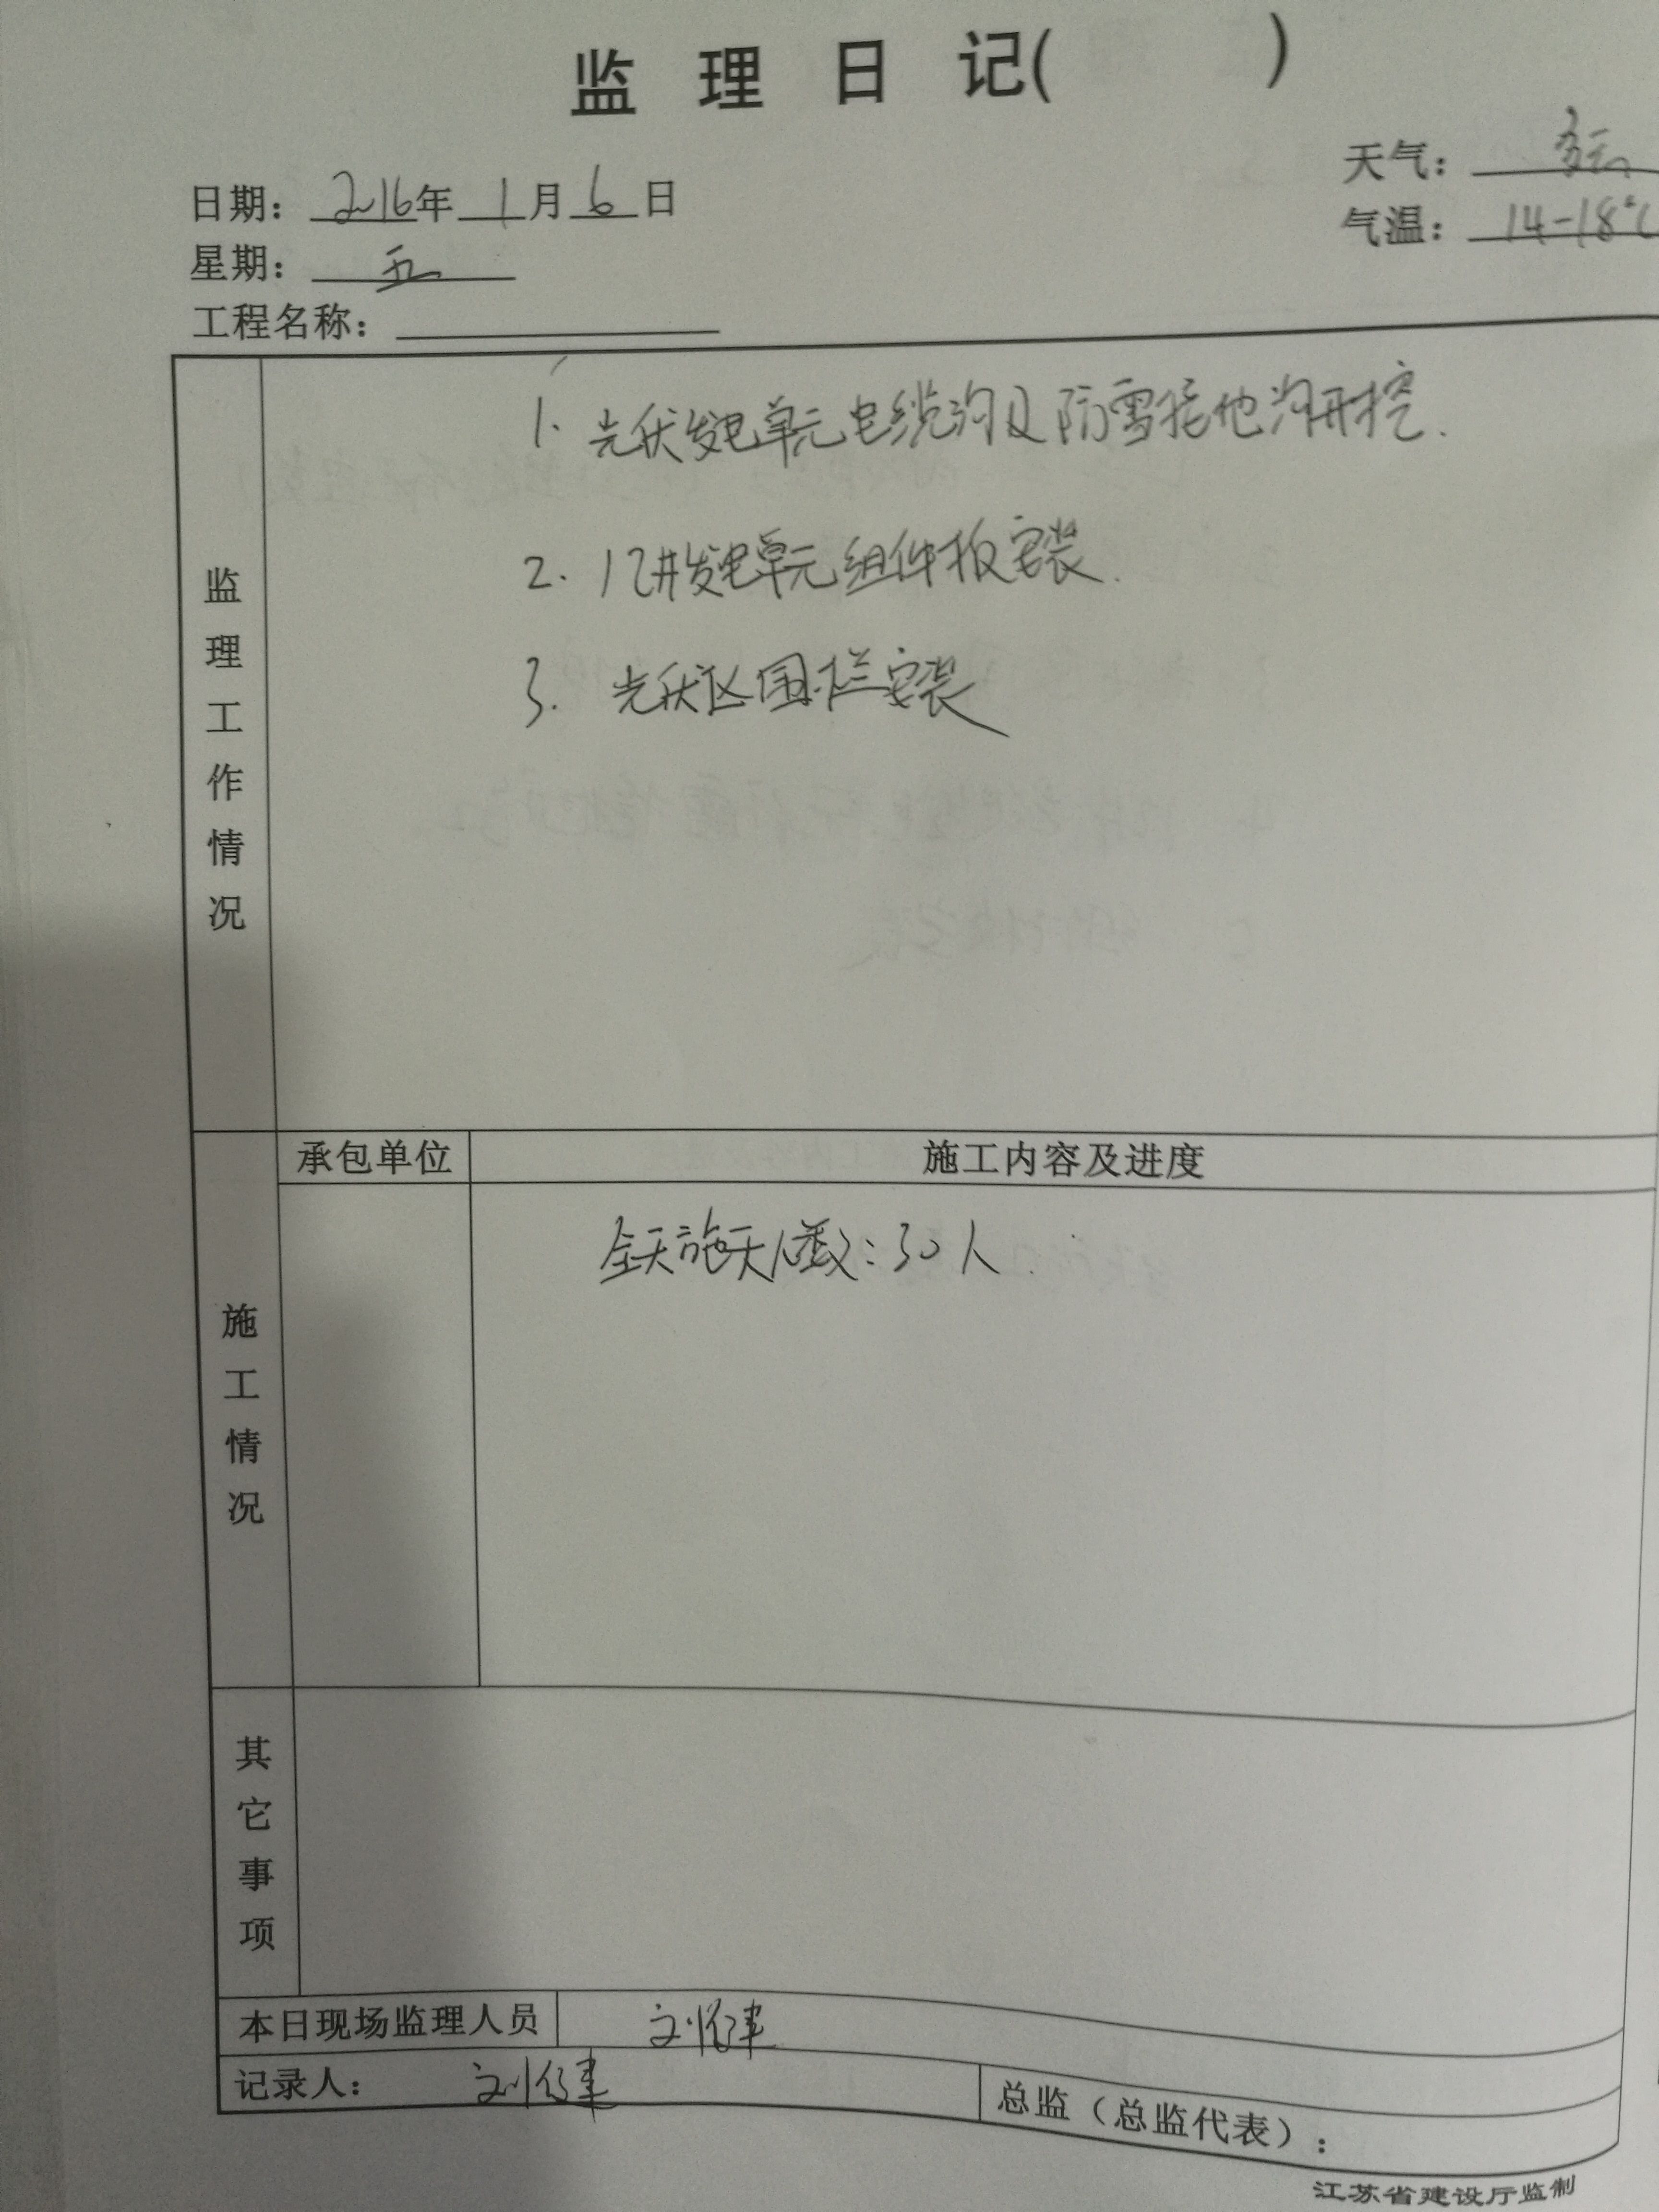 监理日记( )
天气：多云
日期：2016年1月6日
气温：14-18℃
星期：五
工程名称：
监理工作情况
1. 光伏发电单元电缆沟及防雷接地沟开挖.
2. 12#发电单元组件板安装.
3. 光伏区围栏安装
承包单位 施工内容及进度
施工情况
全天施工人数：30人.
其它事项
本日现场监理人员 刘
记录人： 刘
总监（总监代表）：
江苏省建设厅监制